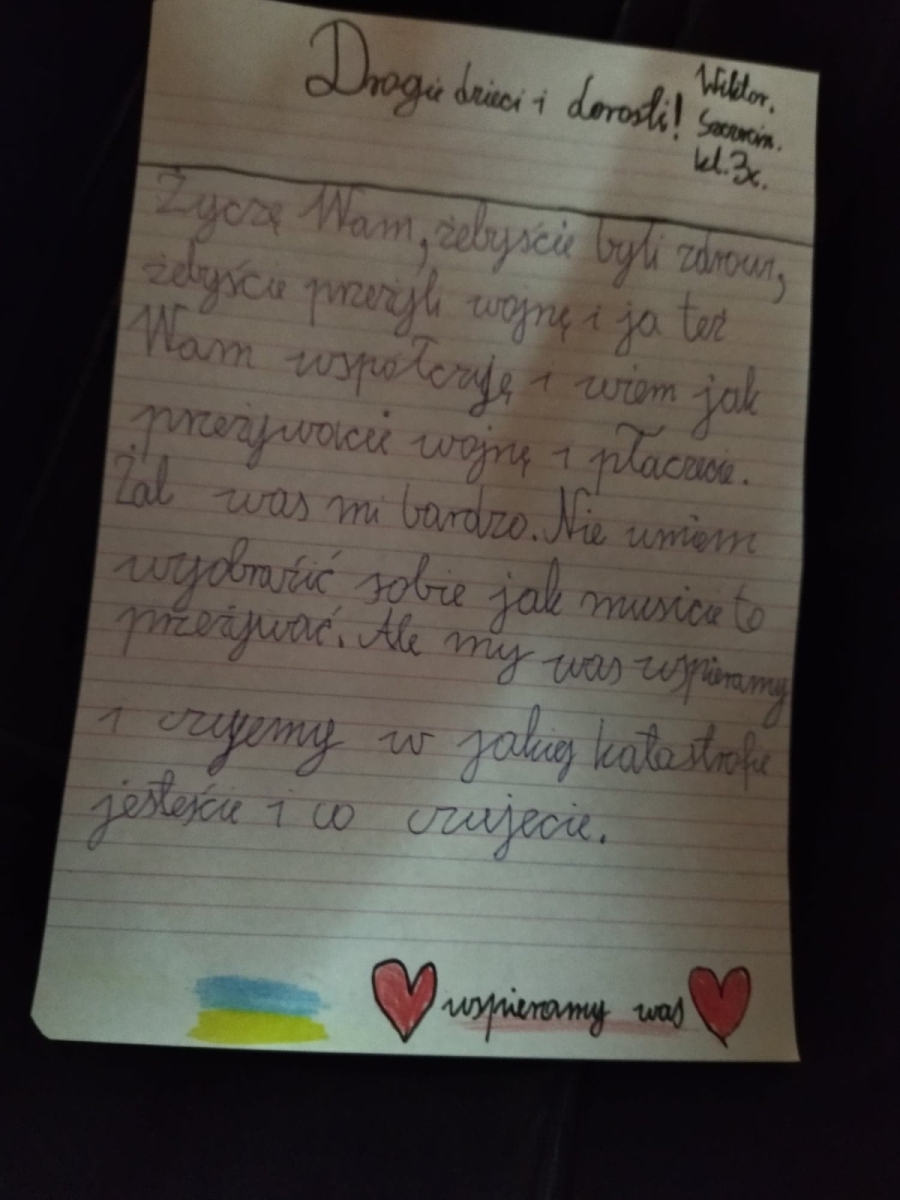 Drogie dzieci i dorośli!
Wiktor.
Szczecin.
kl. 3c.
Życzę Wam, żebyście byli zdrowi,
żebyście przeżyli wojnę i ja też
Wam współczuję i wiem jak
przeżywacie wojnę i płaczecie.
Żal was mi bardzo. Nie umiem
wyobraźić sobie jak musicie to
przeżywać. Ale my was wspieramy
i czujemy w jakiej katastrofie
jesteście i co czujecie.
wspieramy was